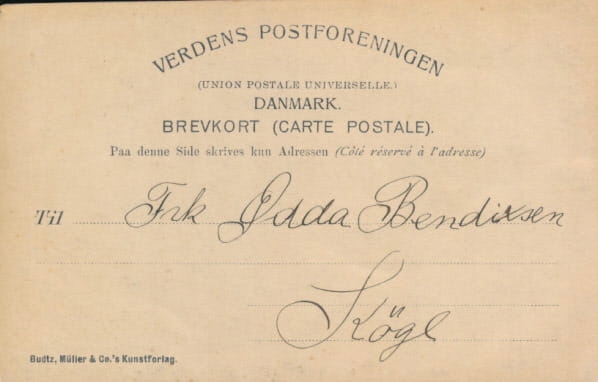 VERDENS POSTFORENINGEN
(UNION POSTALE UNIVERSELLE.)
DANMARK.
BREVKORT (CARTE POSTALE).
Paa denne Side skrives kun Adressen (Côté réservé à l'adresse)
Til Frk Odda Bendixsen
Kögl
Budtz, Müller & Co.'s Kunstforlag.